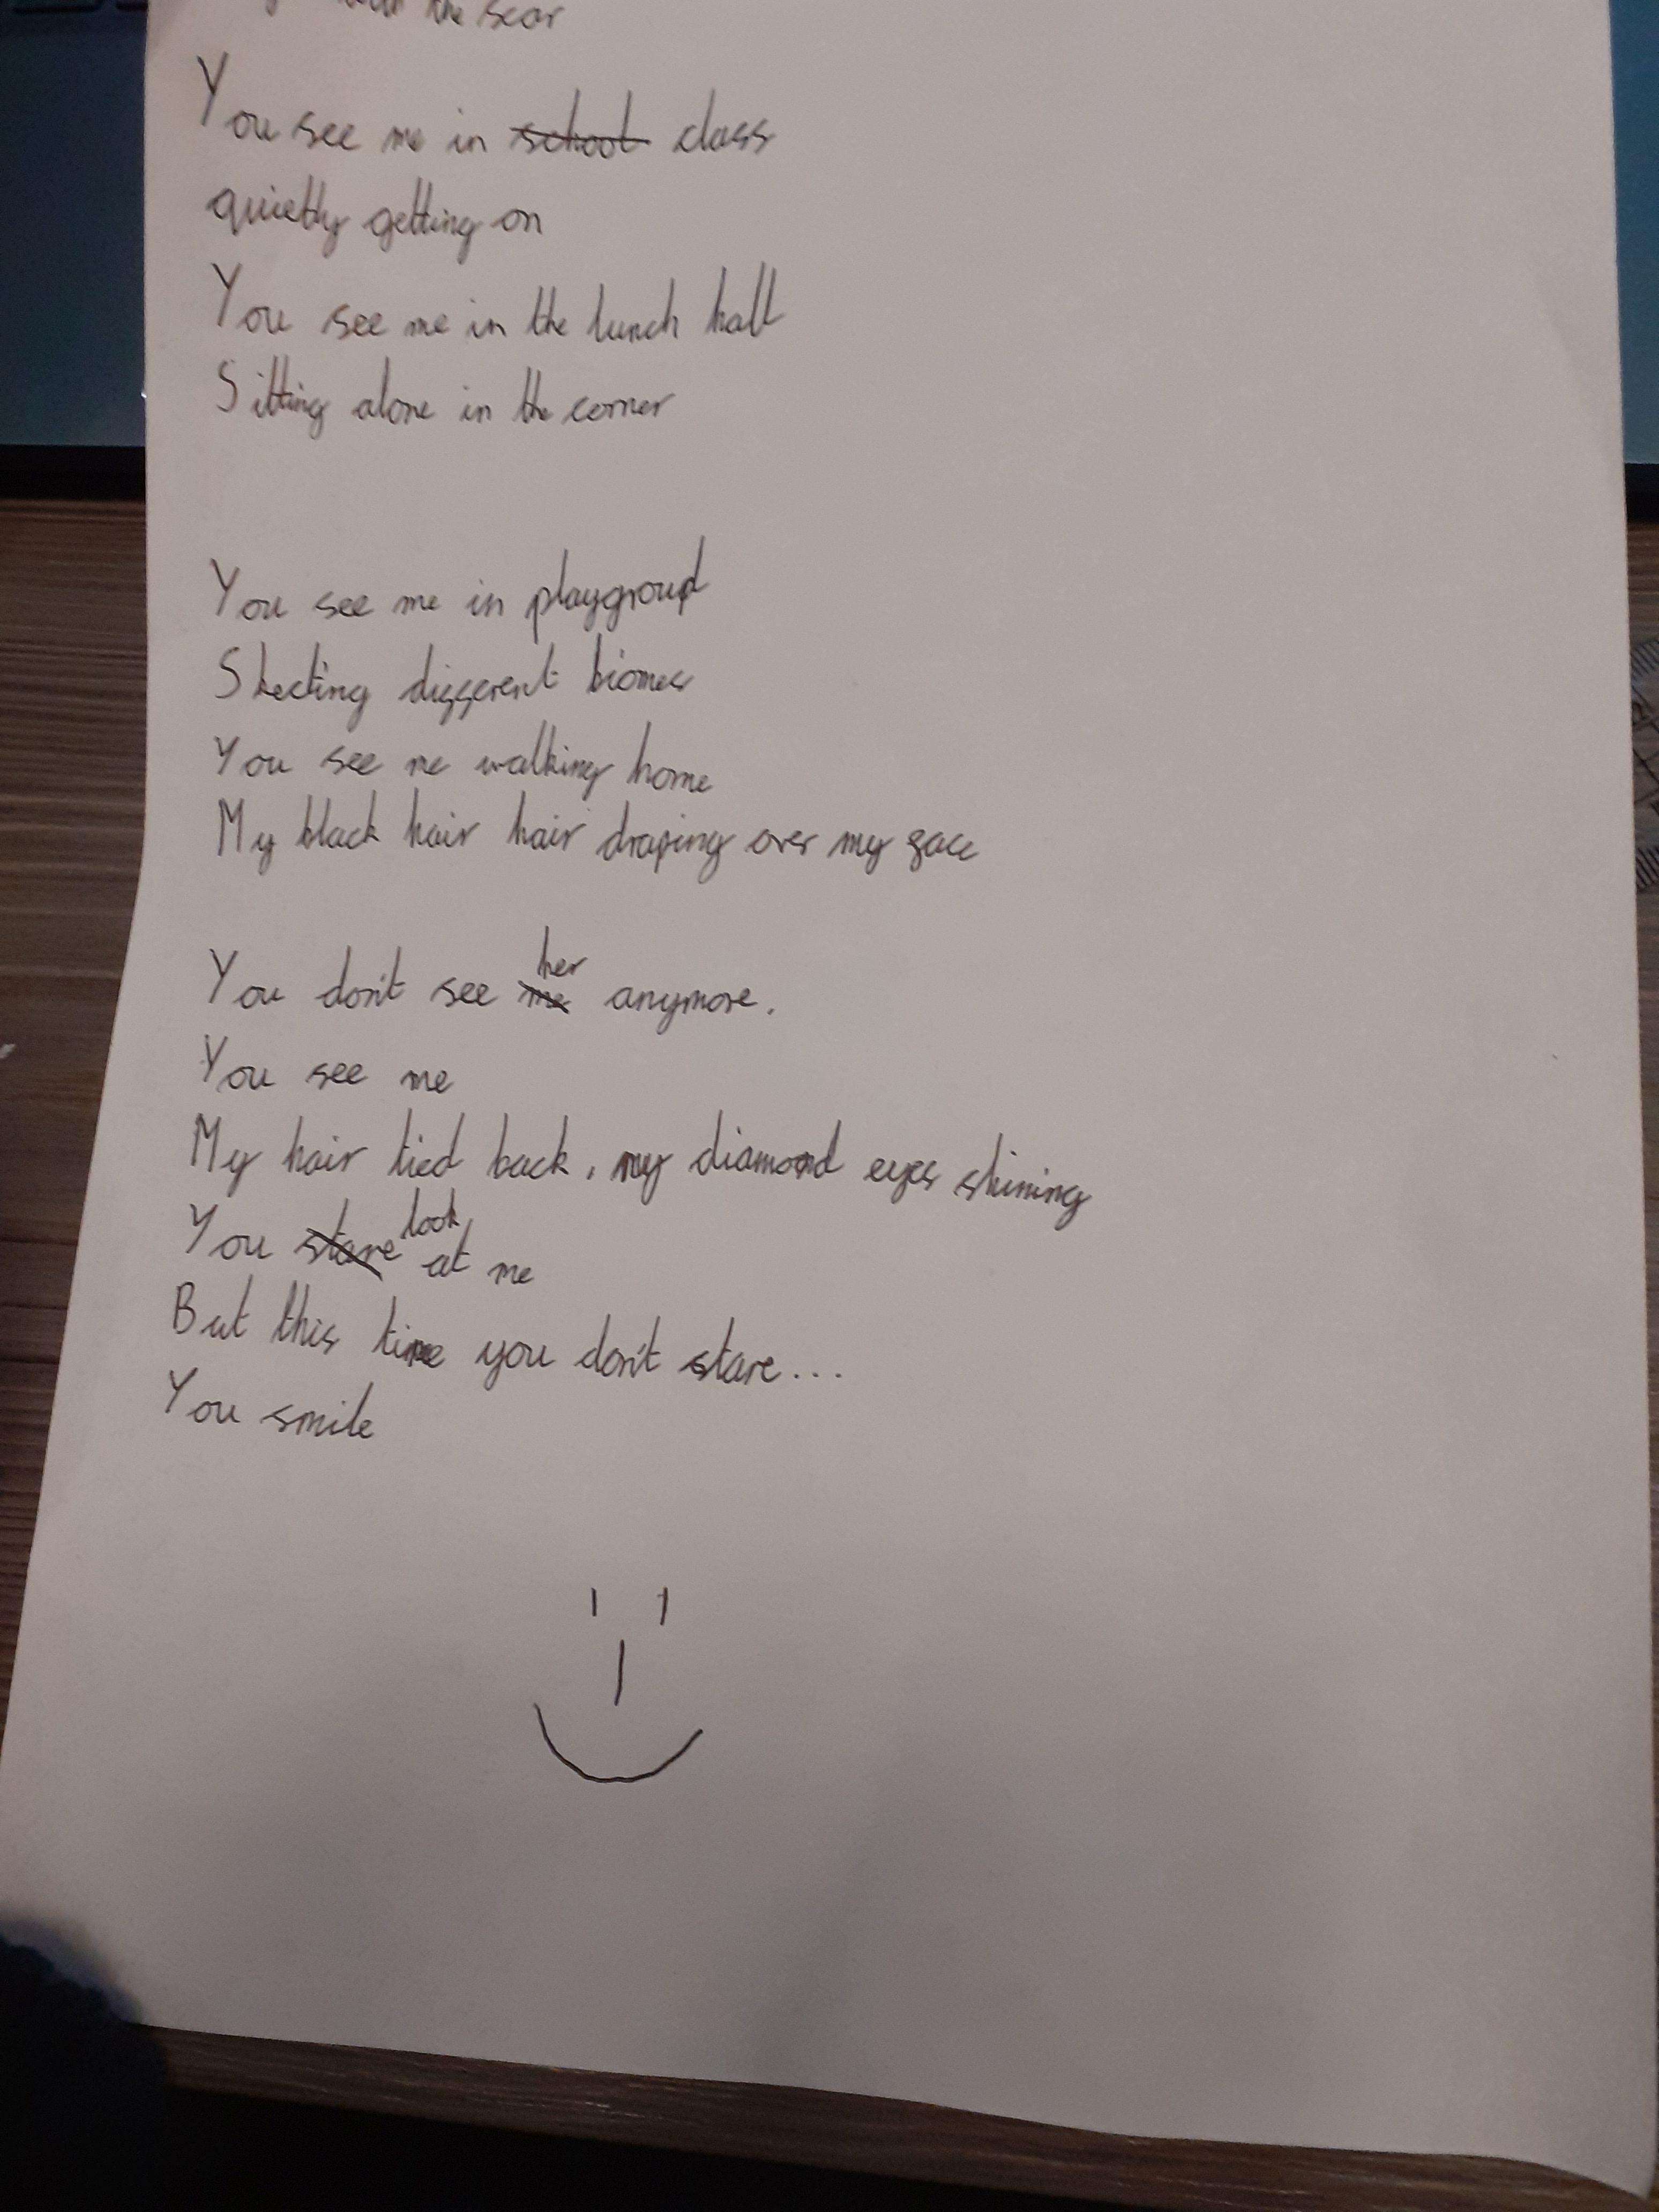 the scar
You see me in school class
quietly getting on
You see me in the lunch hall
Sitting alone in the corner
You see me in playgroud
Skecting different biomes
You see me walking home
My black hair hair draping over my face
her
You don't see me anymore.
You see me
My hair tied back, my diamond eyes shining
You stare look at me
But this time you don't stare...
You smile